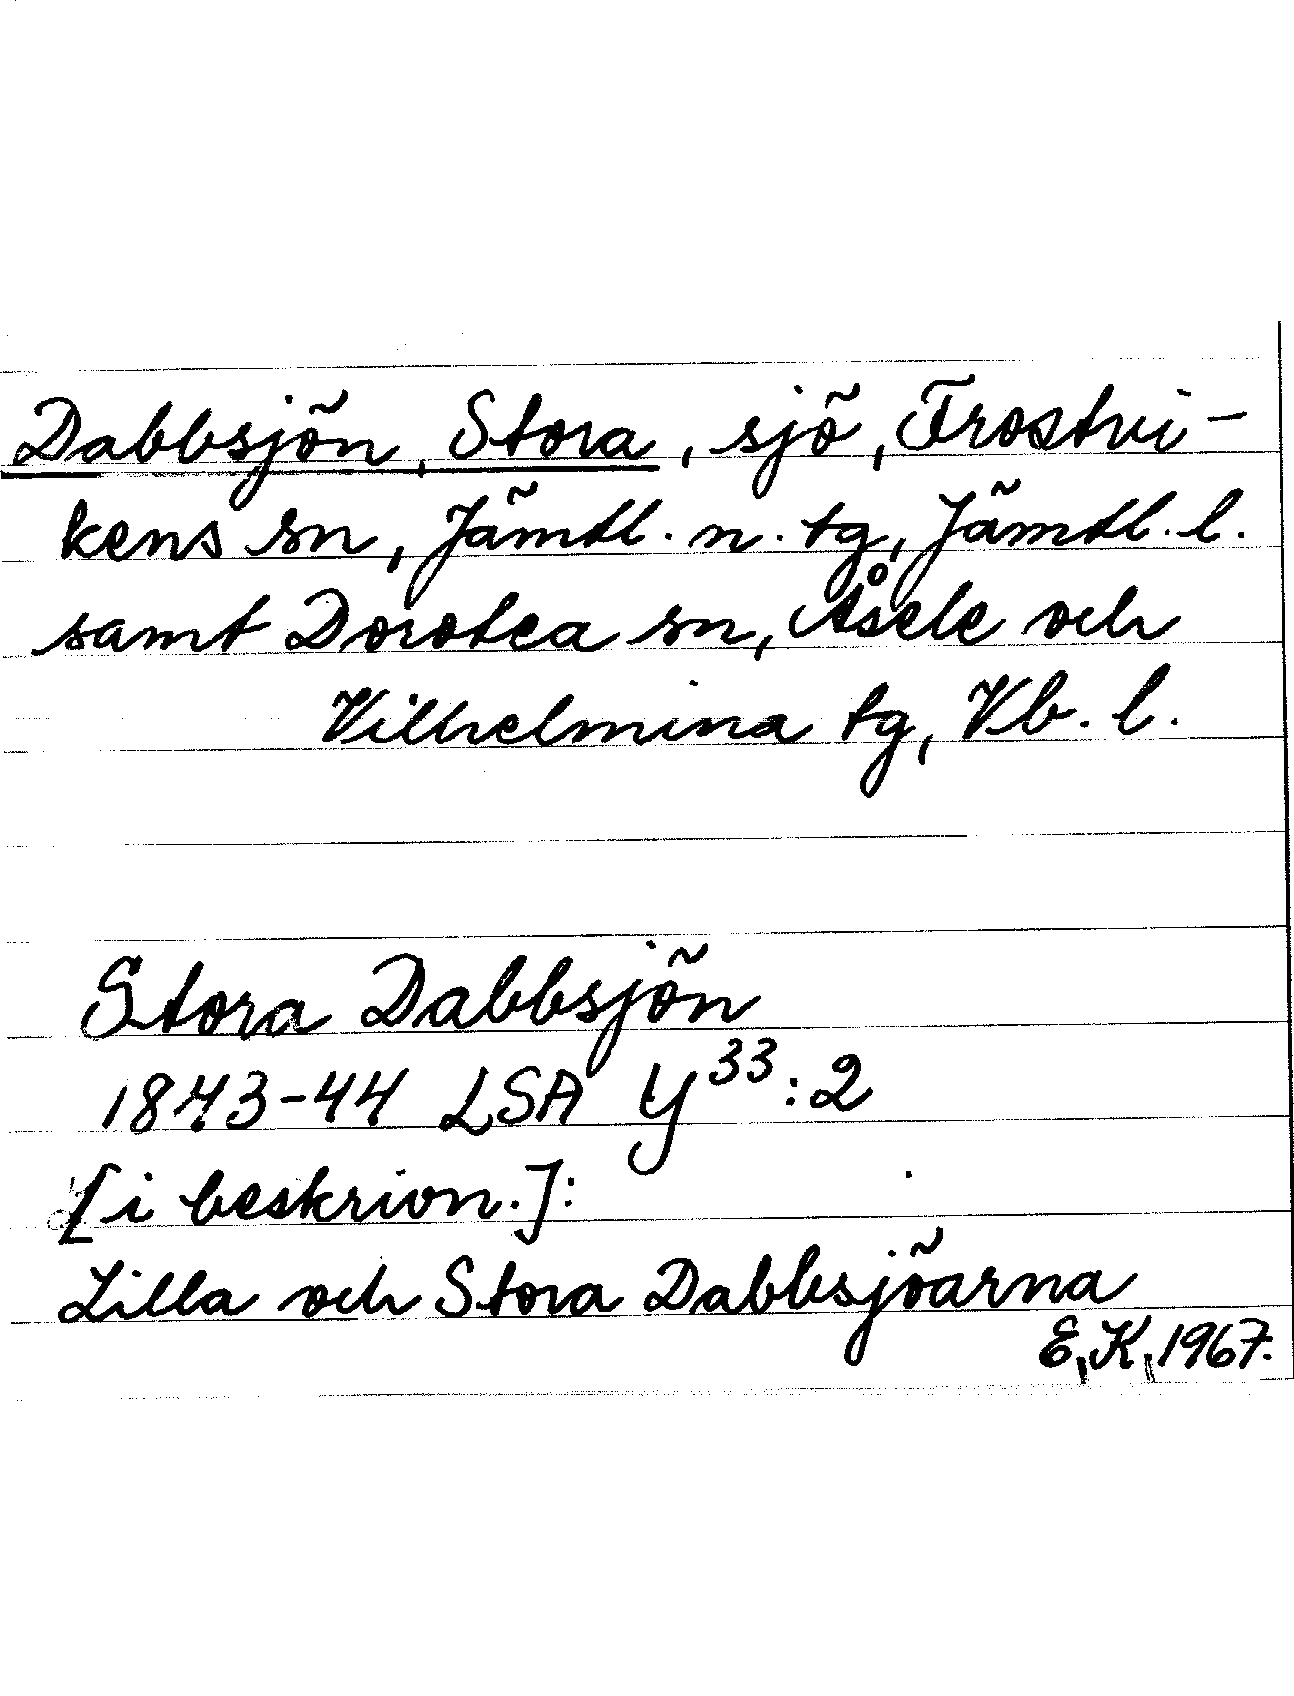 Dabbsjön, Stora, sjö, Frostvi-
kens sn, Jämtl. n. tg, Jämtl. l.
samt Dorotea sn, Åsele och
Vilhelmina tg, Vb. l.
Stora Dabbsjön
1843-44 LSA Y³³:2
[i beskrivn.]:
Lilla och Stora Dabbsjöarna
E.K. 1967.